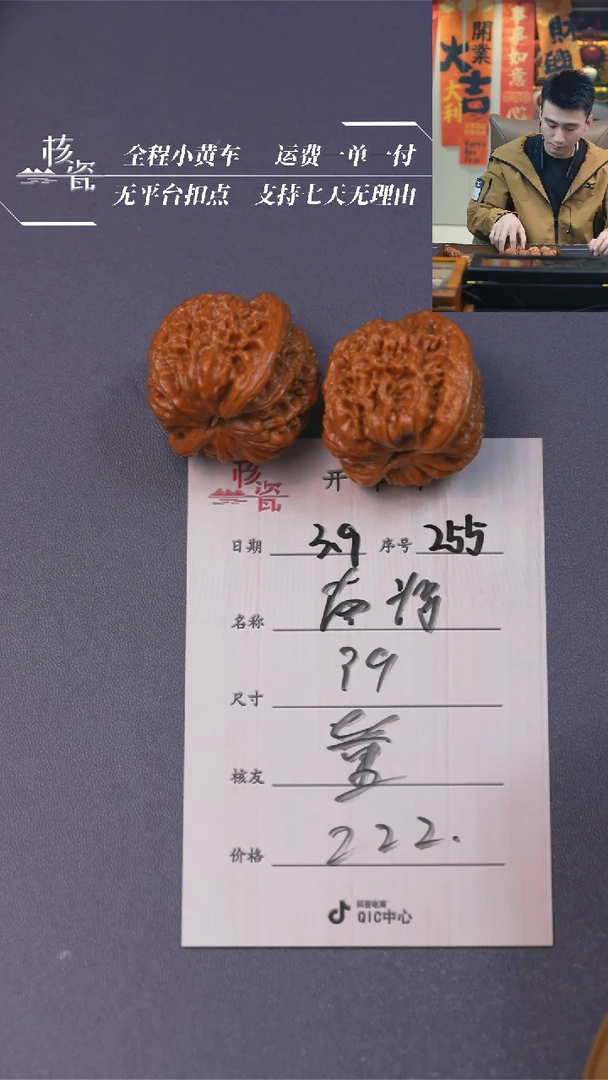 核瓷
全程小黄车 运费一单一付
无平台扣点 支持七天无理由
開業
大吉
大利
事事如意
心
财
核瓷
开
日期 3.9 序号 255
名称
尺寸 39
核友 董
价格 222.
抖音电商
QIC中心